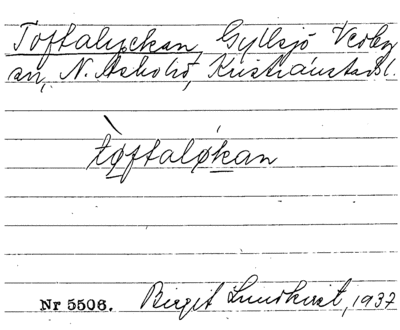 Toftalyckan, Gyllsjö Veoby
sn, N. Åsbohd, Kristianstads l.
tòftaløkan
Nr 5506. Birgit Lundkvist, 1937